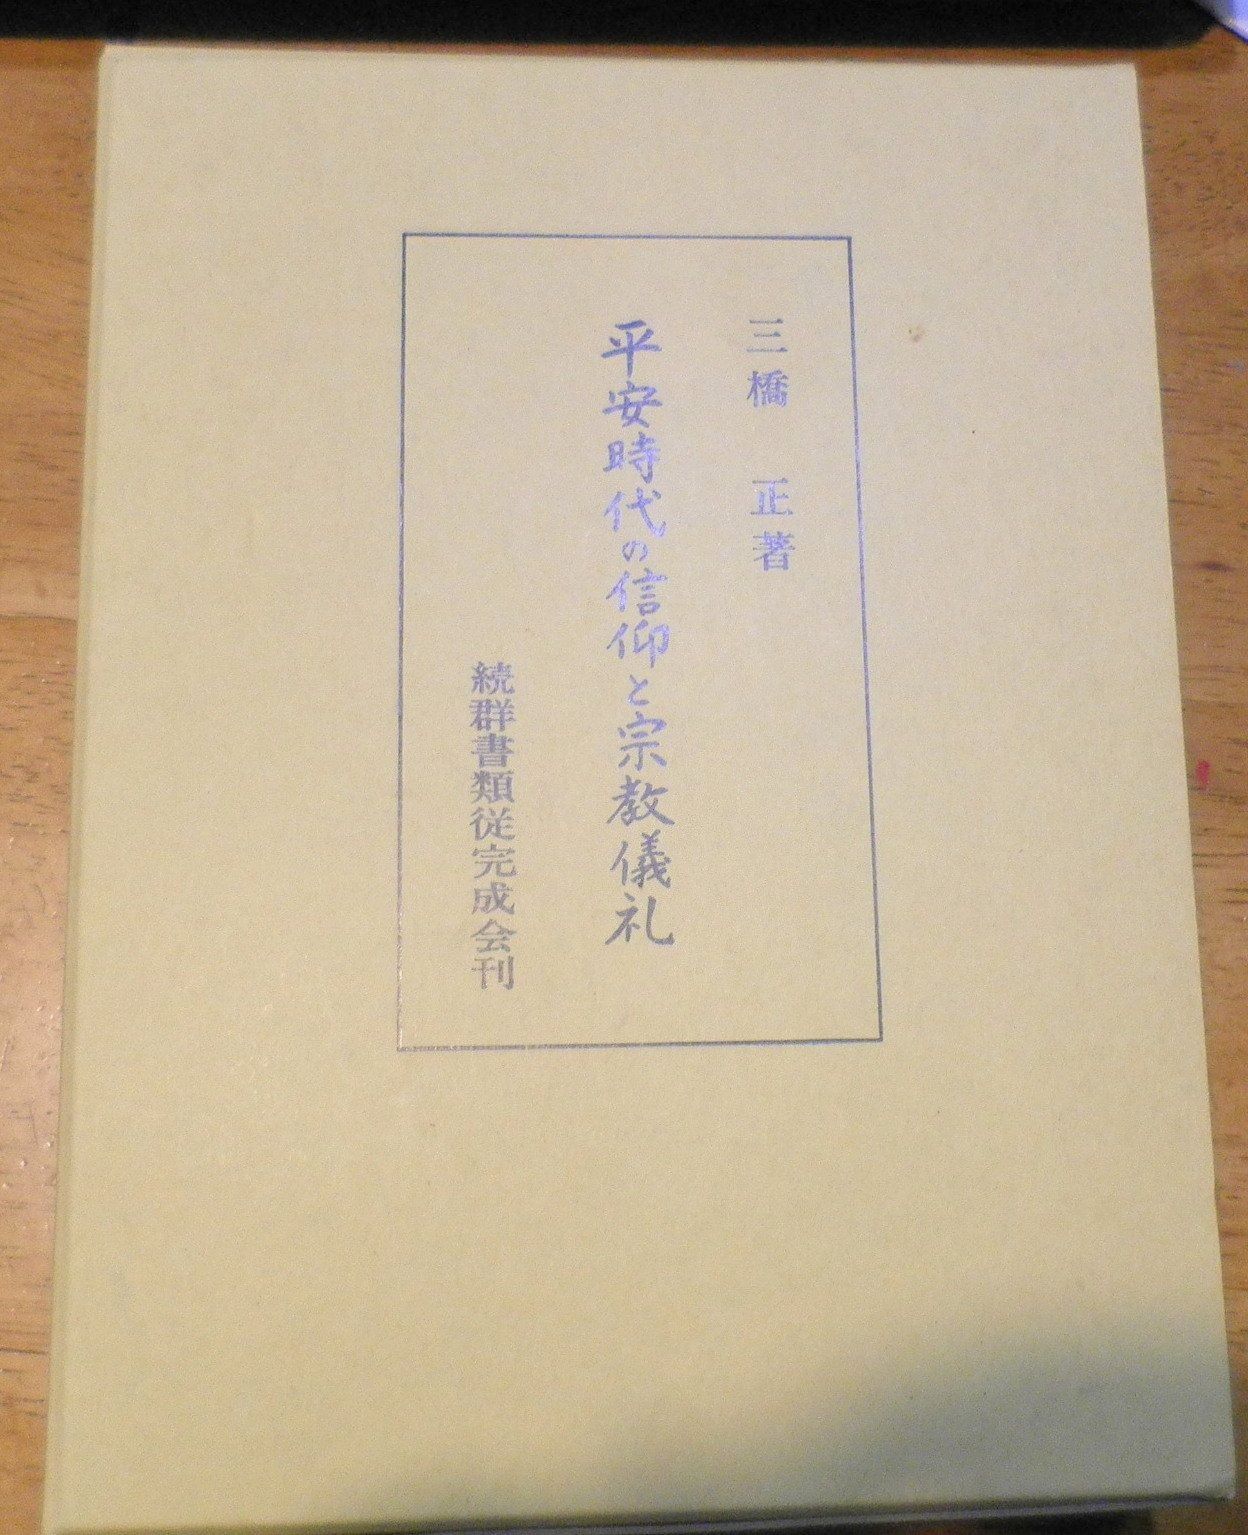 三橋　正著
平安時代の信仰と宗教儀礼
続群書類従完成会刊